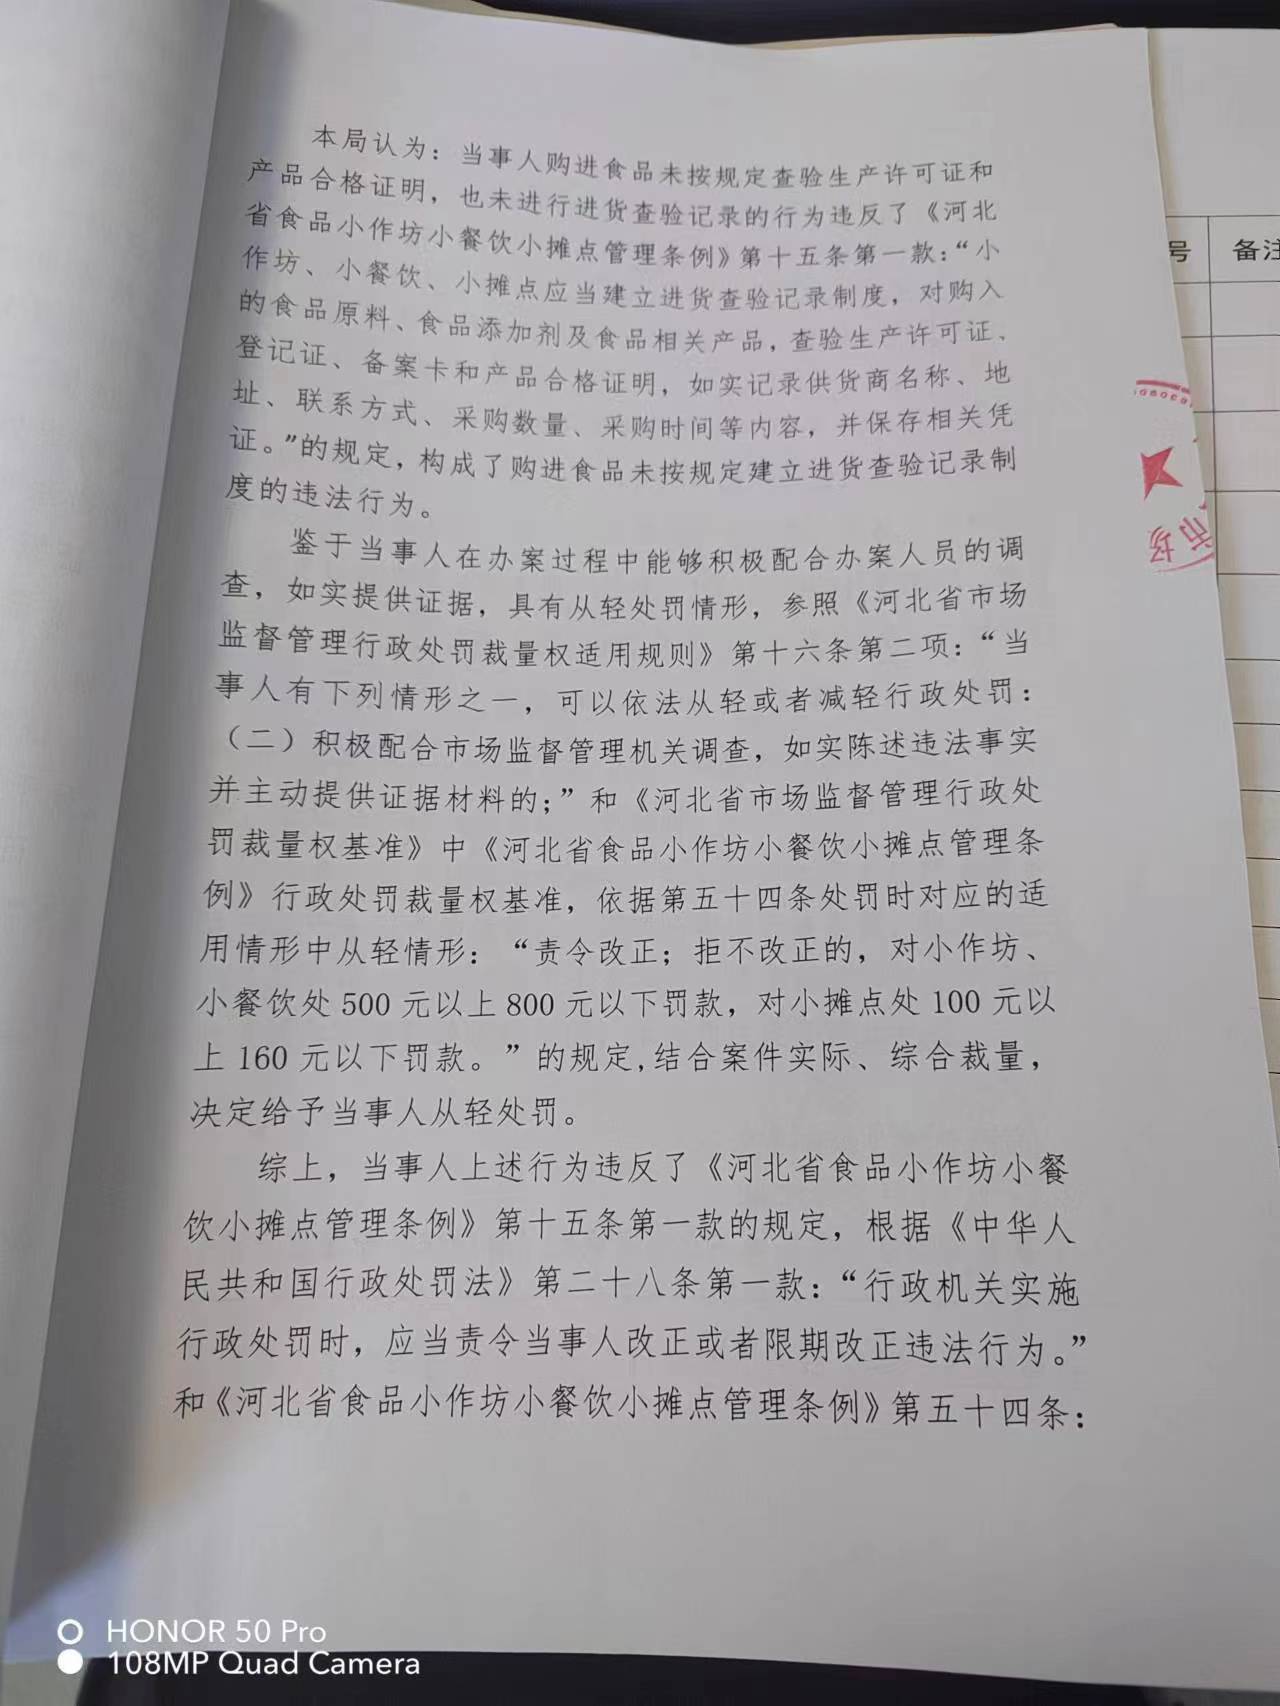 本局认为：当事人购进食品未按规定查验生产许可证和
产品合格证明，也未进行进货查验记录的行为违反了《河北
省食品小作坊小餐饮小摊点管理条例》第十五条第一款：“小
作坊、小餐饮、小摊点应当建立进货查验记录制度，对购入
的食品原料、食品添加剂及食品相关产品，查验生产许可证、
登记证、备案卡和产品合格证明，如实记录供货商名称、地
址、联系方式、采购数量、采购时间等内容，并保存相关凭
证。”的规定，构成了购进食品未按规定建立进货查验记录制
度的违法行为。
鉴于当事人在办案过程中能够积极配合办案人员的调
查，如实提供证据，具有从轻处罚情形，参照《河北省市场
监督管理行政处罚裁量权适用规则》第十六条第二项：“当
事人有下列情形之一，可以依法从轻或者减轻行政处罚：
（二）积极配合市场监督管理机关调查，如实陈述违法事实
并主动提供证据材料的；”和《河北省市场监督管理行政处
罚裁量权基准》中《河北省食品小作坊小餐饮小摊点管理条
例》行政处罚裁量权基准，依据第五十四条处罚时对应的适
用情形中从轻情形：“责令改正；拒不改正的，对小作坊、
小餐饮处 500 元以上 800 元以下罚款，对小摊点处 100 元以
上 160 元以下罚款。”的规定,结合案件实际、综合裁量，
决定给予当事人从轻处罚。
综上，当事人上述行为违反了《河北省食品小作坊小餐
饮小摊点管理条例》第十五条第一款的规定，根据《中华人
民共和国行政处罚法》第二十八条第一款：“行政机关实施
行政处罚时，应当责令当事人改正或者限期改正违法行为。”
和《河北省食品小作坊小餐饮小摊点管理条例》第五十四条：
号
备注
市场
HONOR 50 Pro
108MP Quad Camera